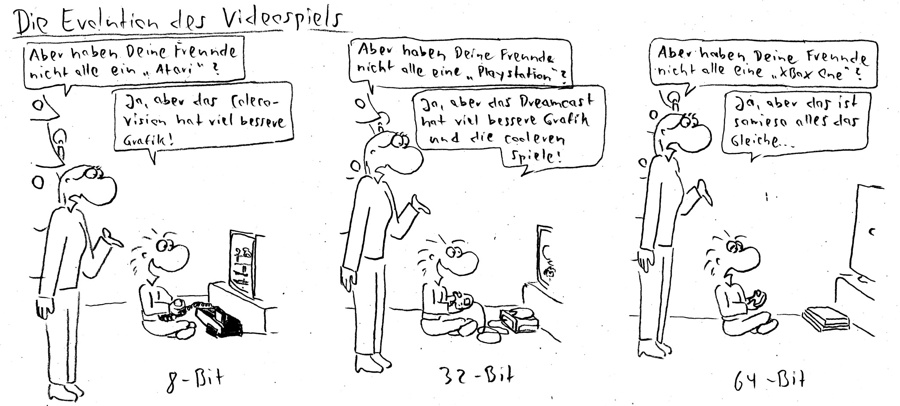 Die Evolution des Videospiels
Aber haben Deine Freunde
nicht alle ein „Atari“?
Ja, aber das Coleco-
vision hat viel bessere
Grafik!
8-Bit
Aber haben Deine Freunde
nicht alle eine „Playstation“?
Ja, aber das Dreamcast
hat viel bessere Grafik
und die cooleren
Spiele!
32-Bit
Aber haben Deine Freunde
nicht alle eine „XBox One“?
Ja, aber das ist
sowieso alles das
Gleiche...
64-Bit